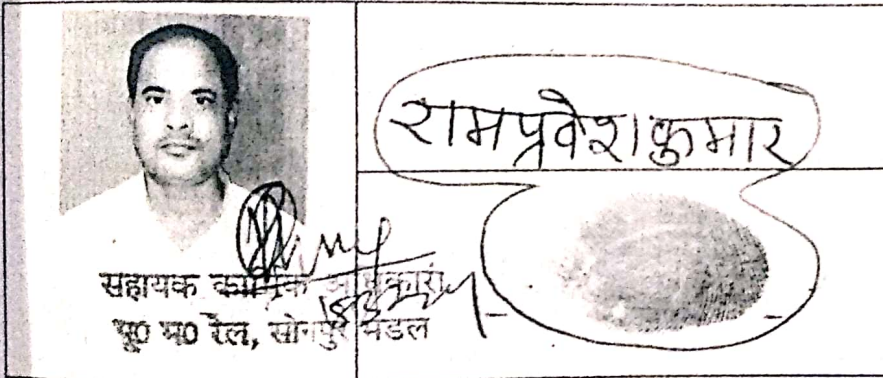 रामप्रवेश कुमार
सहायक कार्मिक अधिकारी
पू0 म0 रेल, सोनपुर मंडल